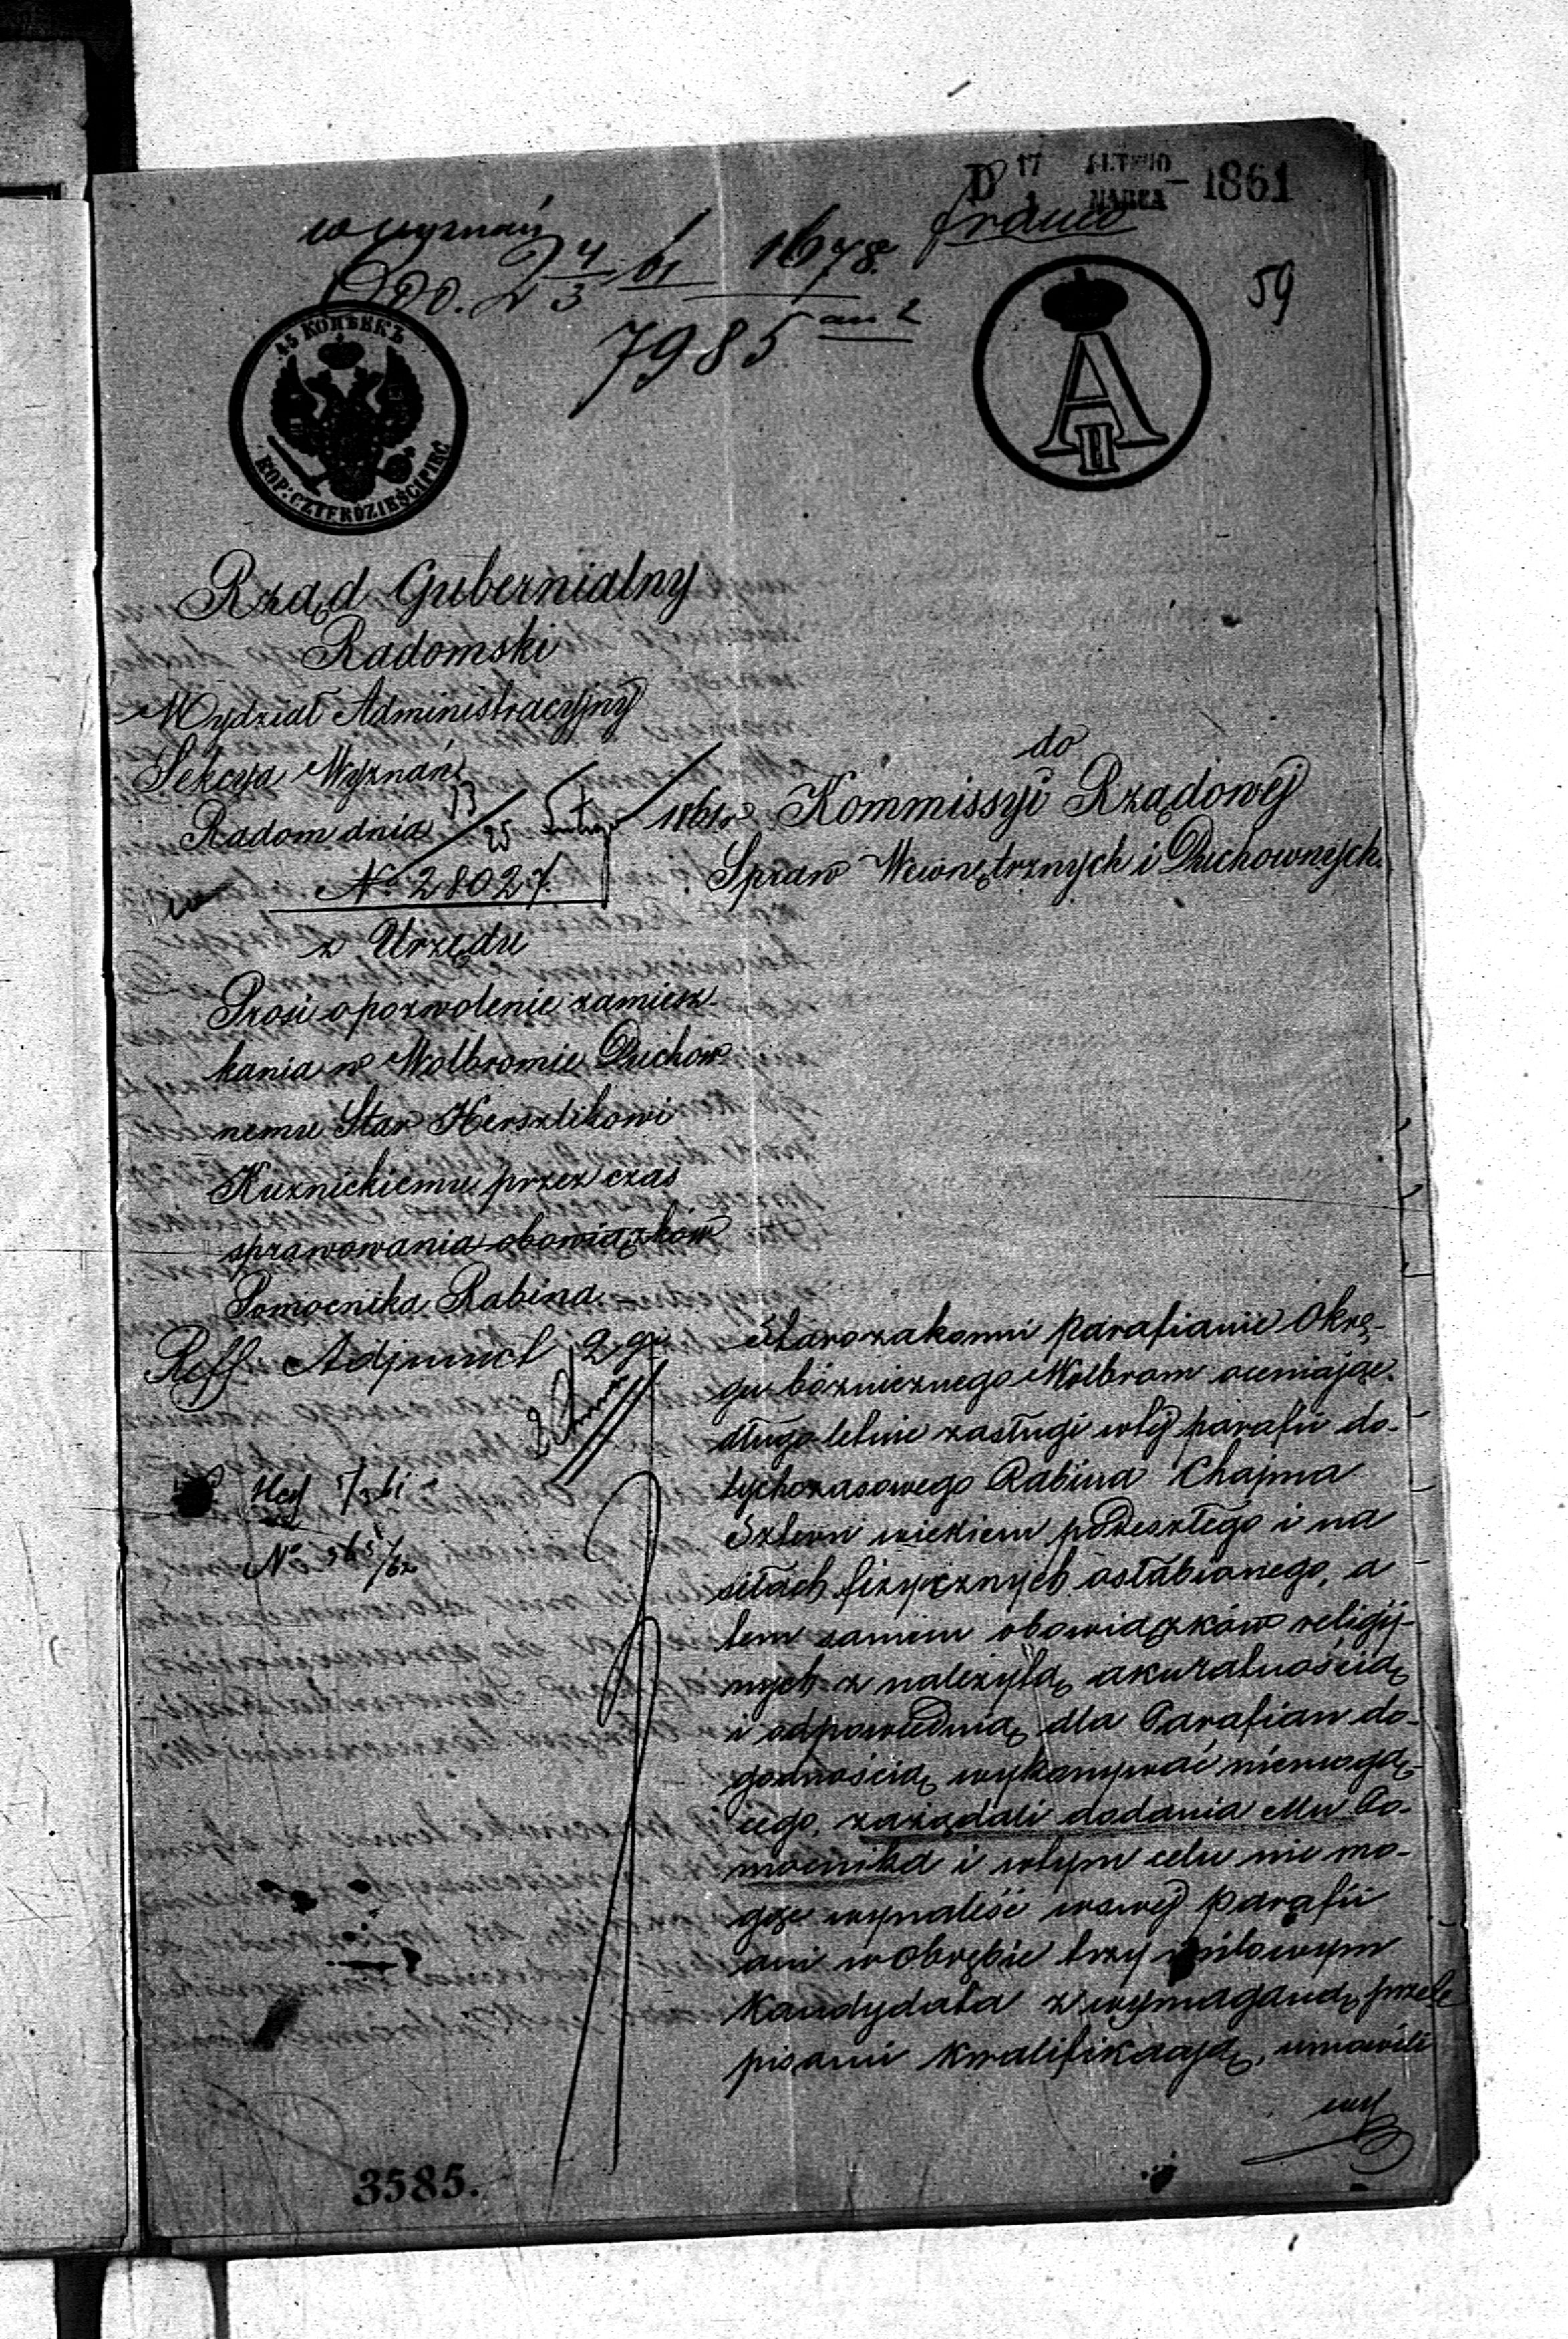 D 17 LUTEGO
1 MARCA - 1861
w wyznań
franco
Ddo. 2 4/3 61 1678.
7985 an 2
59
45 КОПѢЕКЪ
KOP: CZTERDZIEŚCI PIĘĆ
A II
Rząd Gubernialny
Radomski
Wydział Administracyjny
Sekcya Wyznań
Radom dnia 13/25 Lutego 1861 r.
No 28027.
z Urzędu
Prosi o pozwolenie zamiesz-
kania w Wolbromie Duchow-
nemu Star Herszlikowi
Kuznickiemu przez czas
sprawowania obowiązków
Pomocnika Rabina.
Reff Adjunct 2gi
5/3 61
No 365/62
do
Kommissyi Rządowej
Spraw Wewnętrznych i Duchownych.
Starozakonni parafianie Okrę-
gu bóżnicznego Wolbrom oceniając
długoletnie zasługi w tej parafii do-
tychczasowego Rabina Chajma
Sztern wiekiem podeszłego i na
siłach fizycznych osłabionego, a
tem samem obowiązków religij-
nych z należytą akuratnością
i odpowiednią dla Parafian do-
godnością wykonywać niemogą-
cego, zażądali dodania Mu Po-
mocnika i w tym celu nie mo-
gąc wynaleść w swej parafii
ani w Obrębie trzy milowym
Kandydata z wymaganą prze-
pisami kwalifikacyą, umówili
3585.